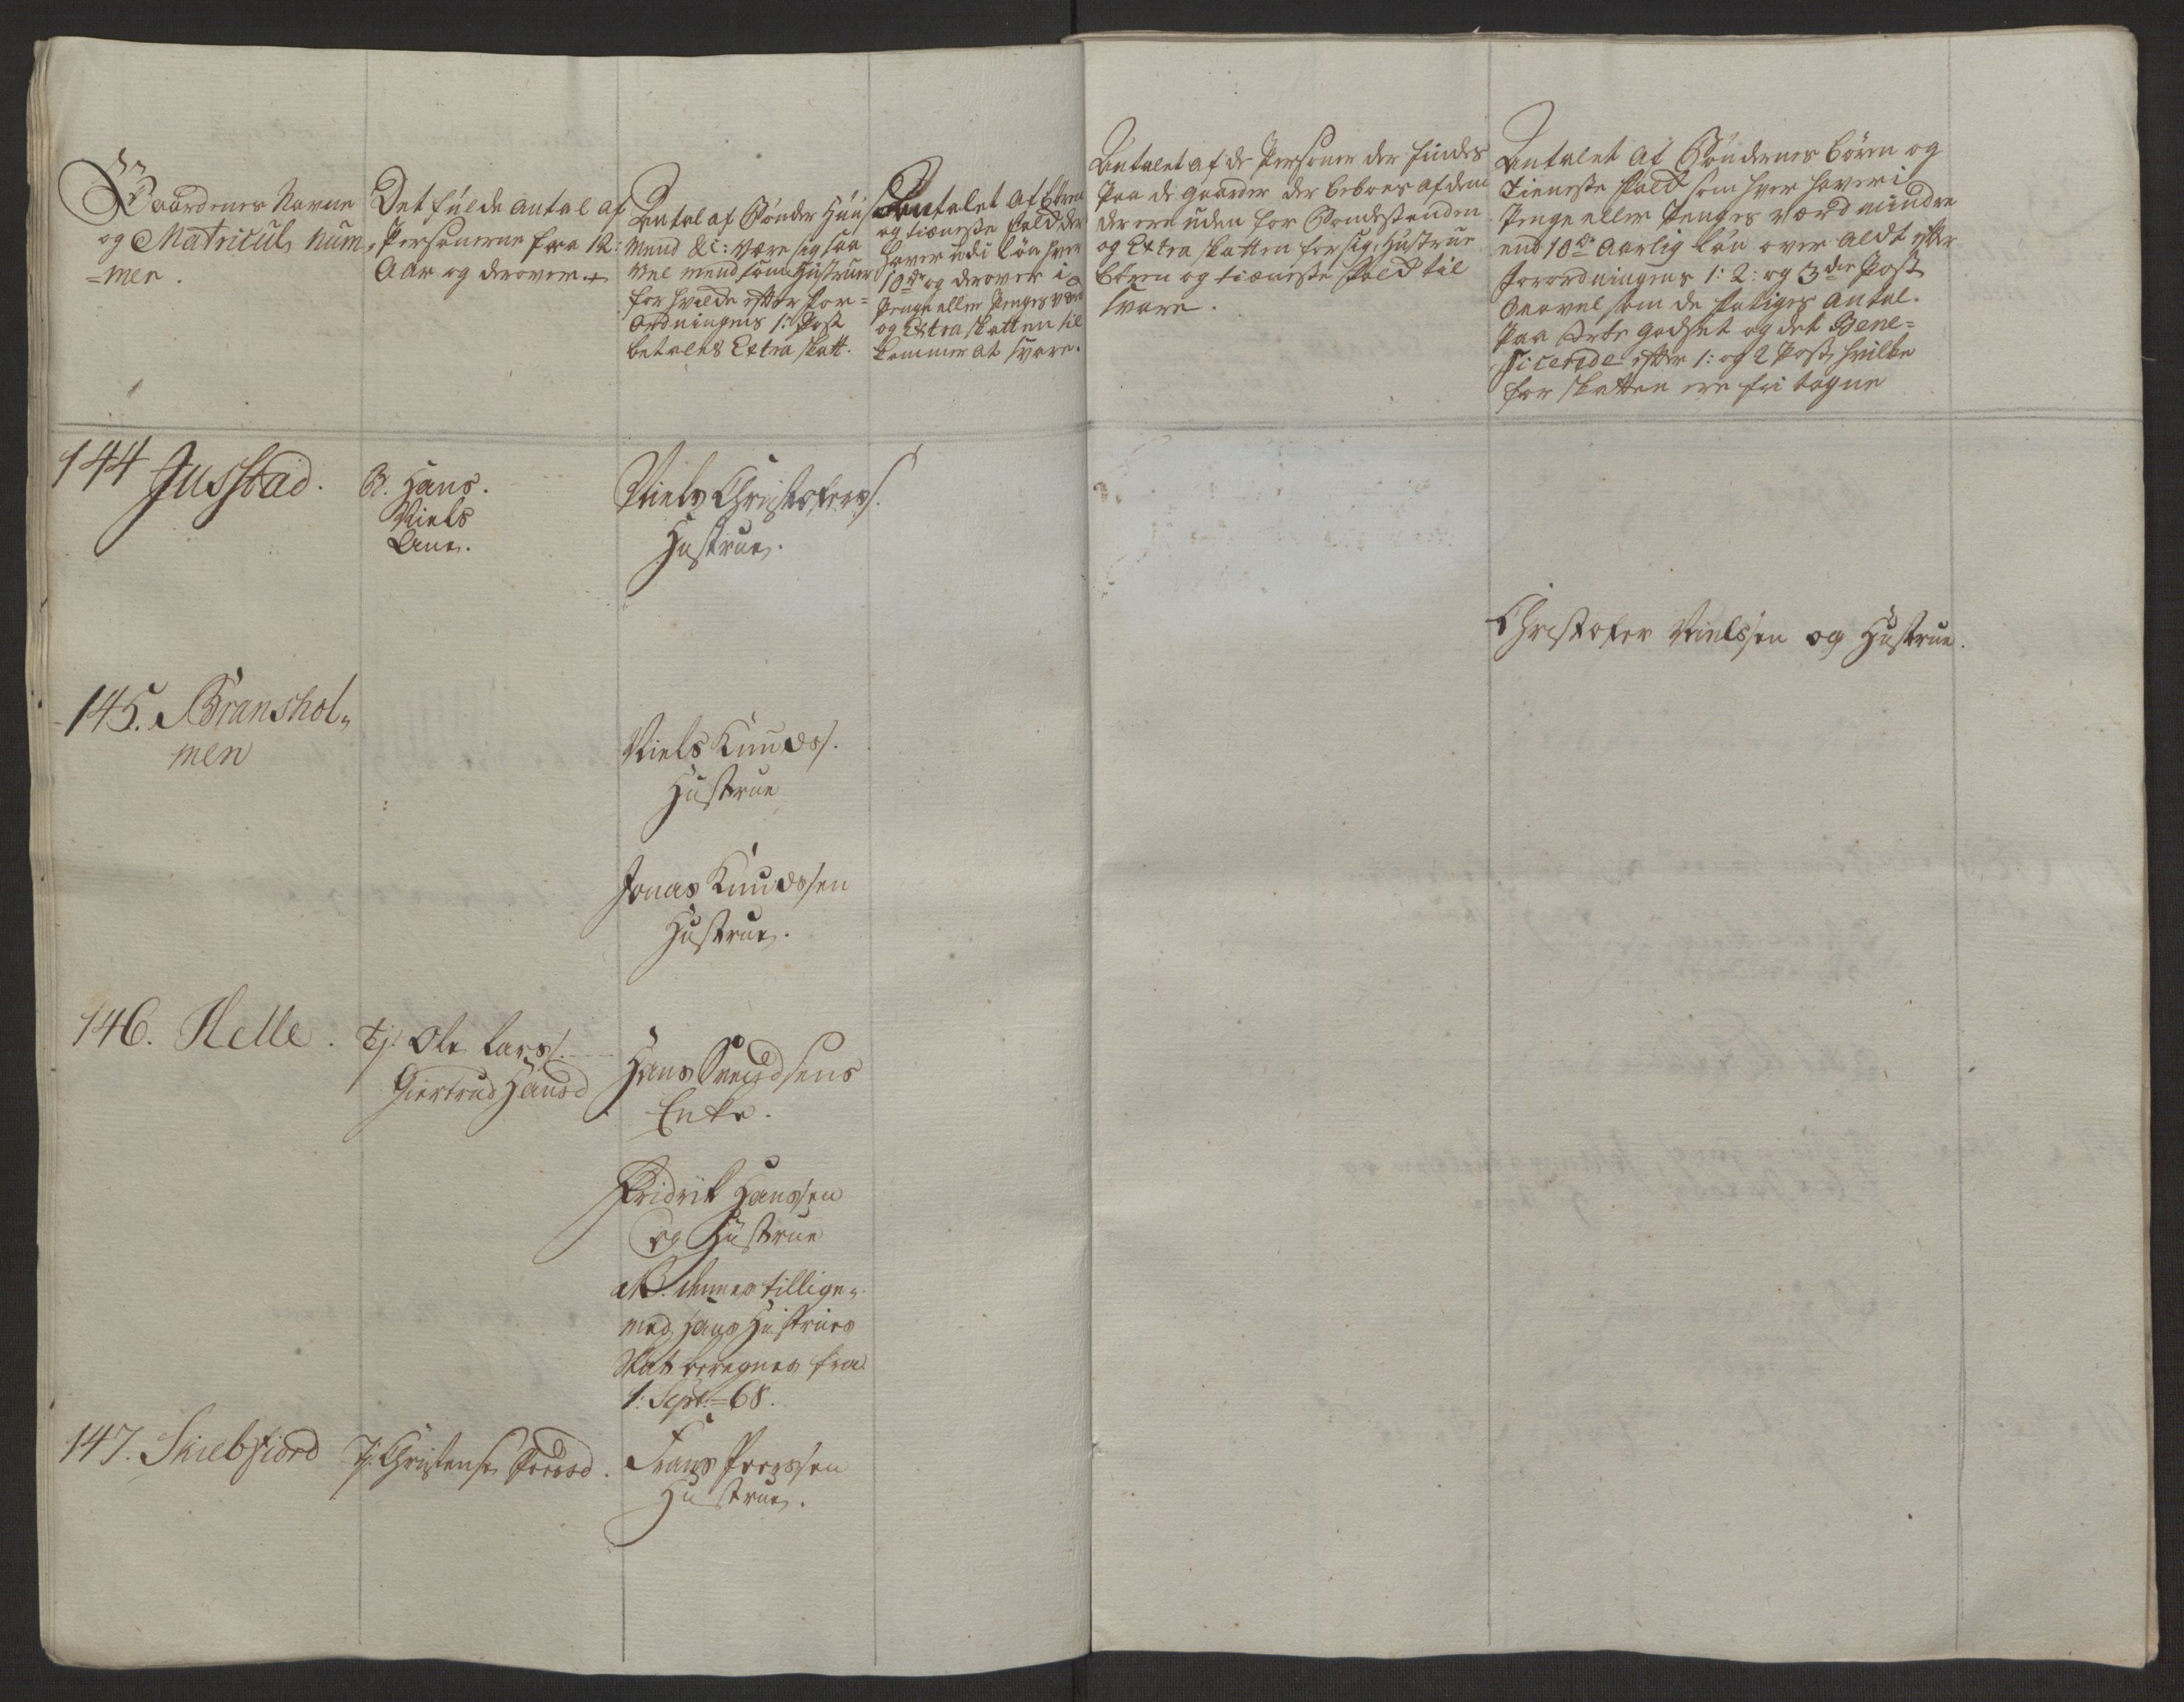 Gaardenes Navne
og Matriculs Num-
=mer.
Det fulde Antal af
Personerne fra 12:
Aar og derover.
Antal af Bønder Huus
Mend &c: være sig saa
vel mend som Hustruer
for hvilde efter For=
ordningens 1: Post
betales Extra skatt.
Antalet af Børn
og tieneste folk der
haver udi løn hver
10 rd og derover i
Penge eller Penges værd
og Extra skatten til
kommer at svare.
Antalet af de Personer der findes
paa de gaarder der beboes af dem
der ere uden for Bondestanden
og Extra skatten for sig, Hustrue
børn og tieneste folk til
svare.
Antalet af Bøndernes børn og
Tieneste folk som hver haver i
Penge eller Penges værd mindre
end 10 rd Aarlig løn over aldt efter
Forordningens 1: 2: og 3die Post
saavel som de fattiges antal.
paa godset og det Bene=
ficerede efter 1: og 2 Post, hvilke
for skatten ere fri tagne
144 Jusstad.
B. Hans.
Niels
Ane.
Niels Christofers.
Hustrue.
Christofer Nielssen og Hustrue.
145. Branshol-
men
Niels Knuds.
Hustrue
Jonas Knudssen
Hustrue.
146. Helle.
Tj. Ole Lars.
Giertrud Hansd
Hans Svendsens
Enke.
Fridrik Hanssen
og Hustrue
NB. dennes tillige-
med hans Hustrues
Skat beregnes fra
1: Sept: = 68.
147. Skiebfiord
Tj. Christense Peersd.
Frans Peerssen
Hustrue.